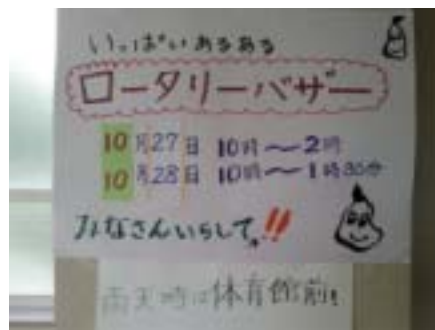 いっぱいあるある
ロータリーバザー
10月27日 10時〜2時
10月28日 10時〜1時30分
みなさんいらして。!!
雨天時は体育館前!